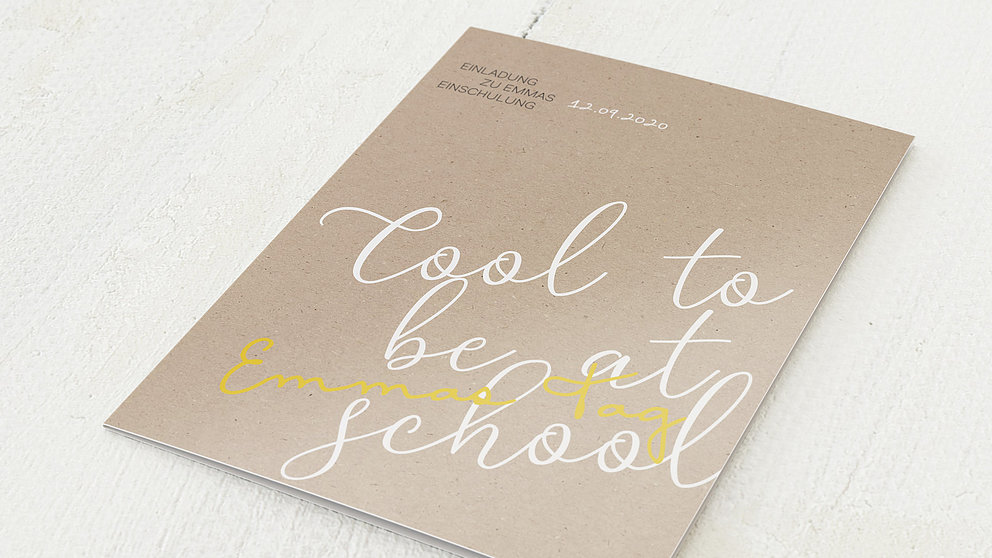 EINLADUNG
ZU EMMAS
EINSCHULUNG
12.09.2020
Cool to
be at
Emmas Tag
school